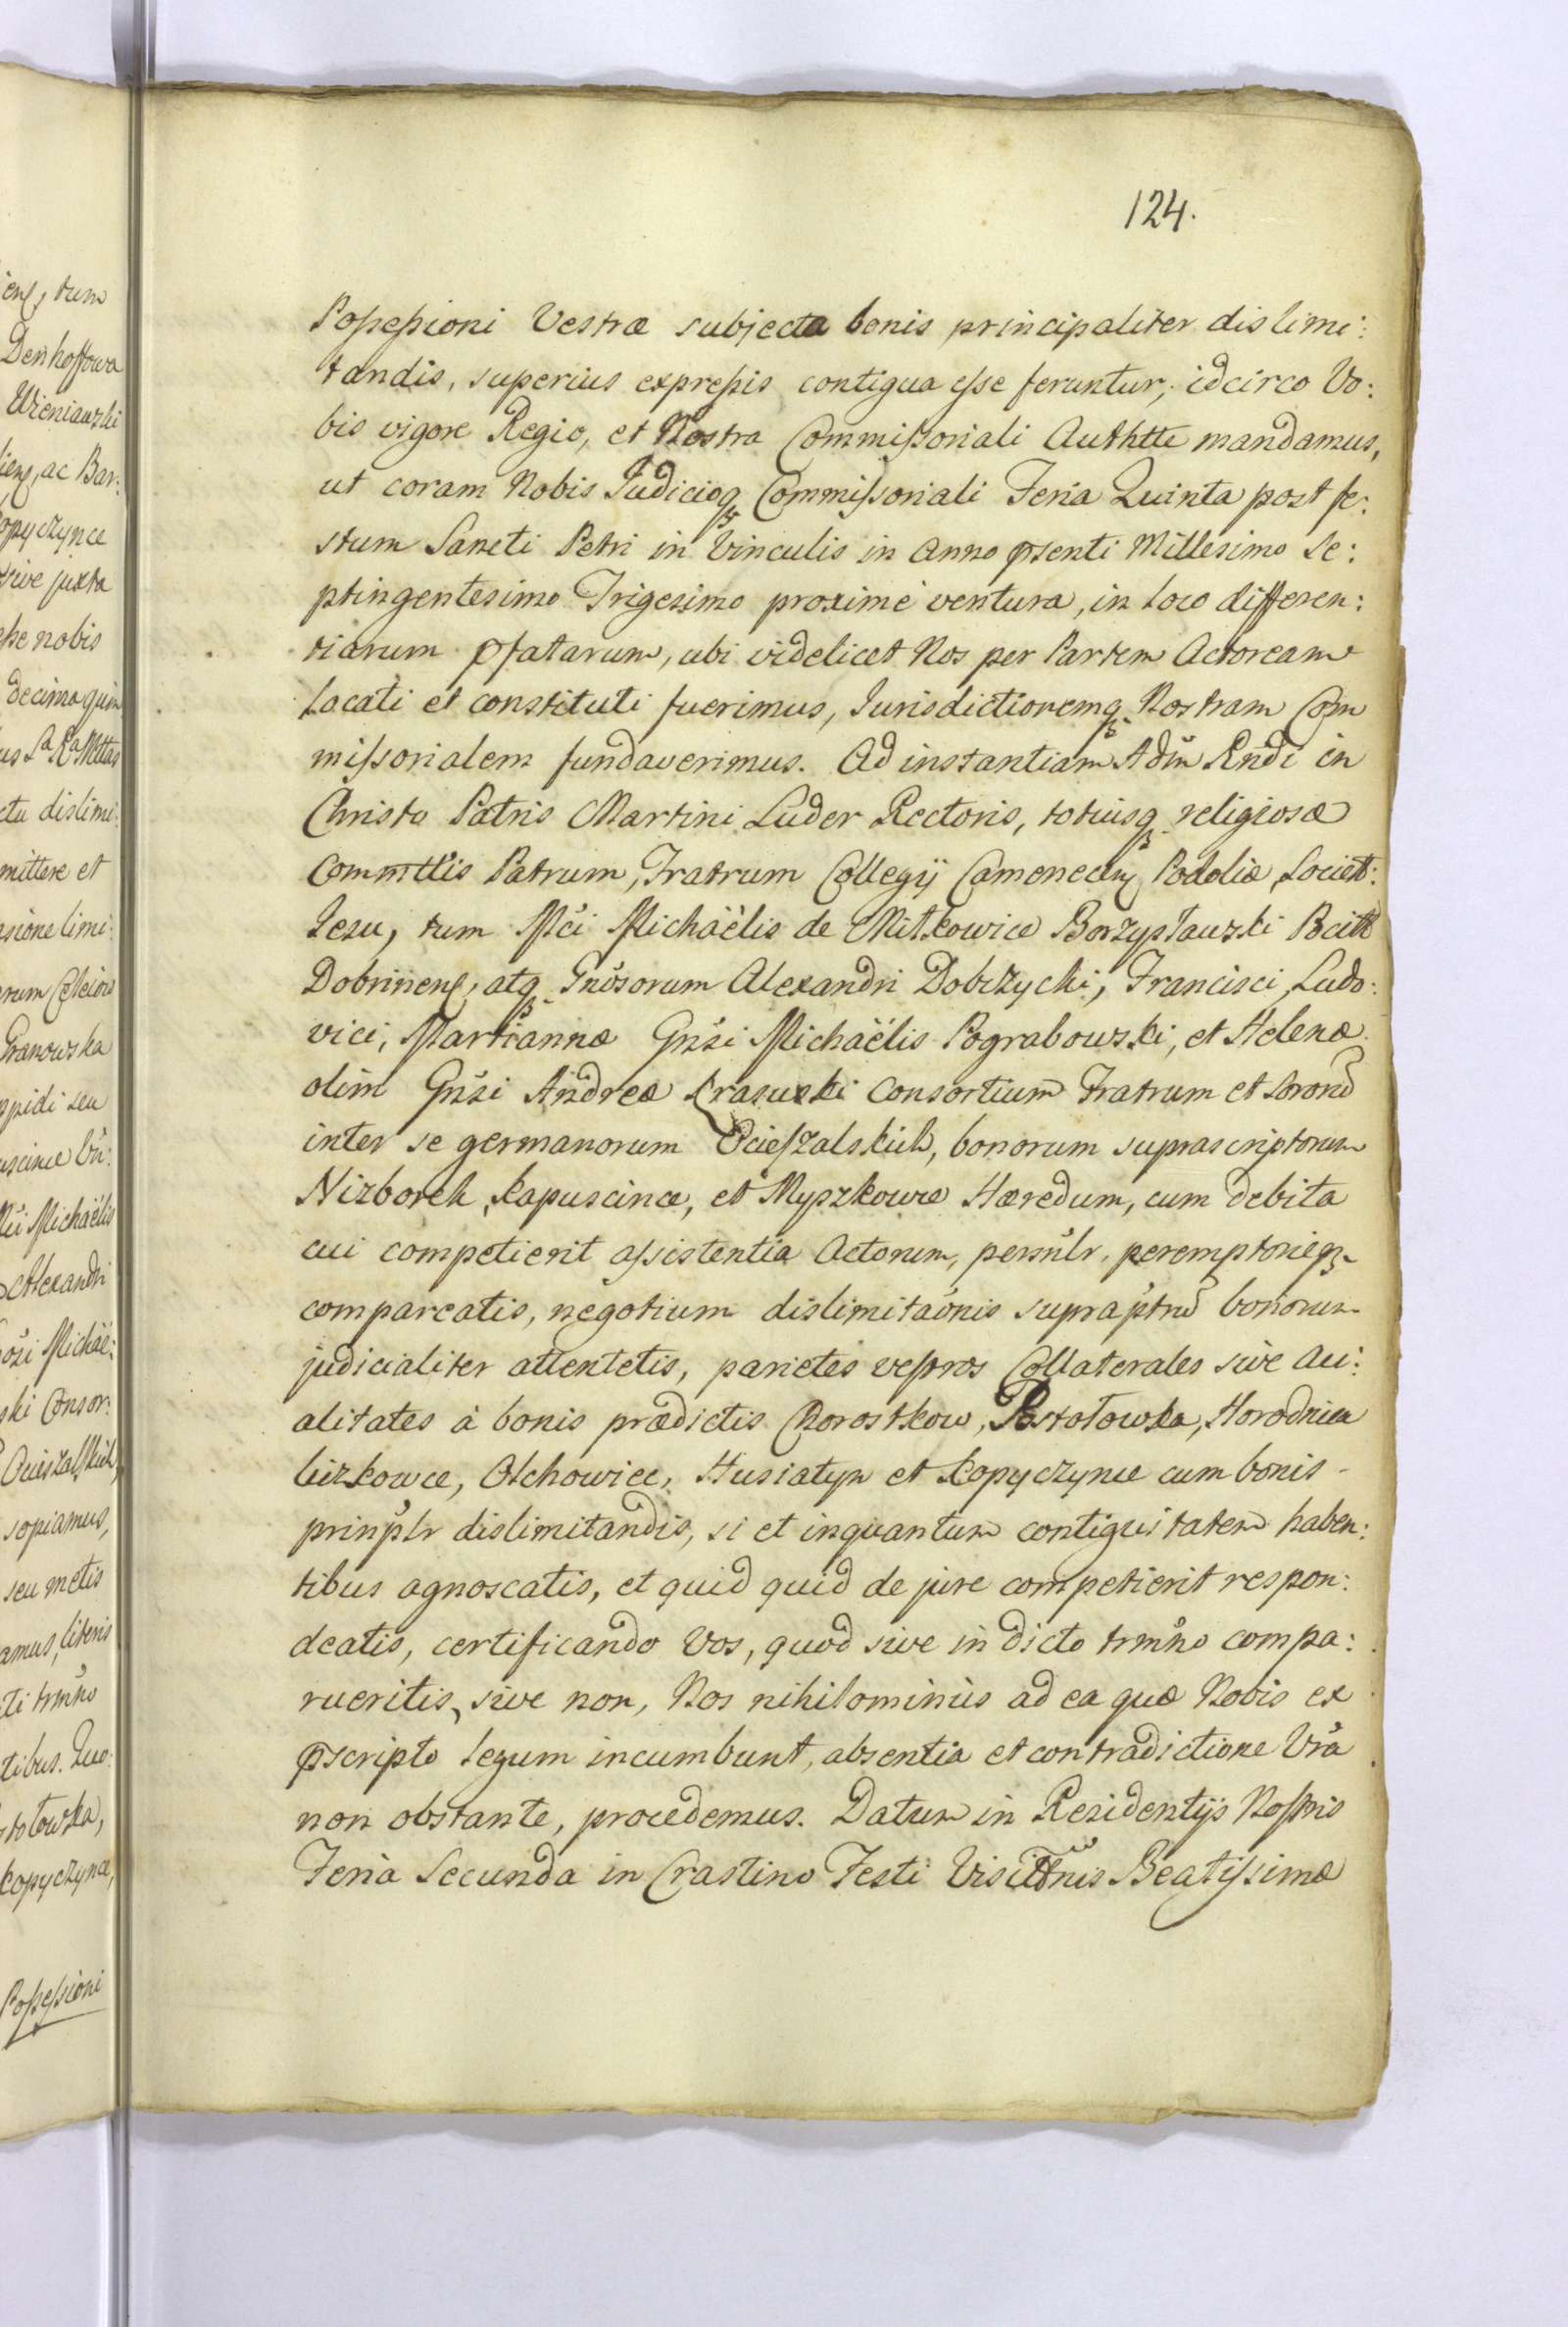 124.
Possessioni Vestræ subjecta bonis principaliter dislimi:
tandis, superius expressis contigua esse feruntur, idcirco Vo:
bis vigore Regio, et Nostra Commissoriali Authtte mandamus,
ut coram Nobis Judicioq Commissoriali Feria Quinta post fe:
stum Sancti Petri in Vinculis in Anno psenti Millesimo Se:
ptingentesimo Trigesimo proximè ventura, in loco differen:
tiarum pfatarum, ubi videlicet Nos per Partem Actoream
locati et constituti fuerimus, Jurisdictionemq Nostram Com
missorialem fundaverimus. Ad instantiam Adm Rndi in
Christo Patris Martini Luder Rectoris, totiusq religiosæ
Commttis Patrum, Fratrum Collegij Camenecen Podoliæ Societt:
Jesu, tum Mci Michäelis de Mitkowice Borzysławski Pcitt
Dobrinens, atq Gnosorum Alexandri Dobrzycki, Francisci, Ludo:
vici, Martiannæ Gnsi Michäelis Pograbowski, et Helenæ
olim Gnsi Andreæ Krasuski Consortium Fratrum et Sorord
inter se germanorum Ocieszalskich, bonorum suprascriptorum
Nizborek, Kapuscince, et Myszkowce Hæredum, cum debita
cui competierit assistentia Actorum, personlr, peremptorieq
compareatis, negotium dislimitaonis supraptrd bonorum
judicialiter attentetis, parietes vestros Collaterales sive Aci:
alitates à bonis prædictis Chorostkow, Postołowka, Horodnica
Cizkowce, Olchowiec, Husiatyn et Kopyczynce cum bonis
prinplr dislimitandis, si et inquantum contiguitatem haben:
tibus agnoscatis, et quid quid de jure competierit respon:
deatis, certificando Vos, quod sive in dicto trmno compa:
rueritis, sive non, Nos nihilominùs ad ea quæ Nobis ex
pscripto legum incumbunt, absentia et contradictione Vra
non obstante, procedemus. Datum in Residentijs Nostris
Feria Secunda in Crastino Festi Visittnis Beatissimæ
iens, tum
Denhoffowa
Wieniawski
iens, ac Bar:
opyczynce
sive juxta
nobis
decima quin
dislimi:
mittere et
limi:
Granowska
ppidi seu
Michäelis
Alexandri
Michäe:
ski Consor:
Ocieszalskich,
sopiamus,
seu metis
amus, literis
ti trmno
tibus. Quo:
stołowka,
Kopyczynce,
Possessioni